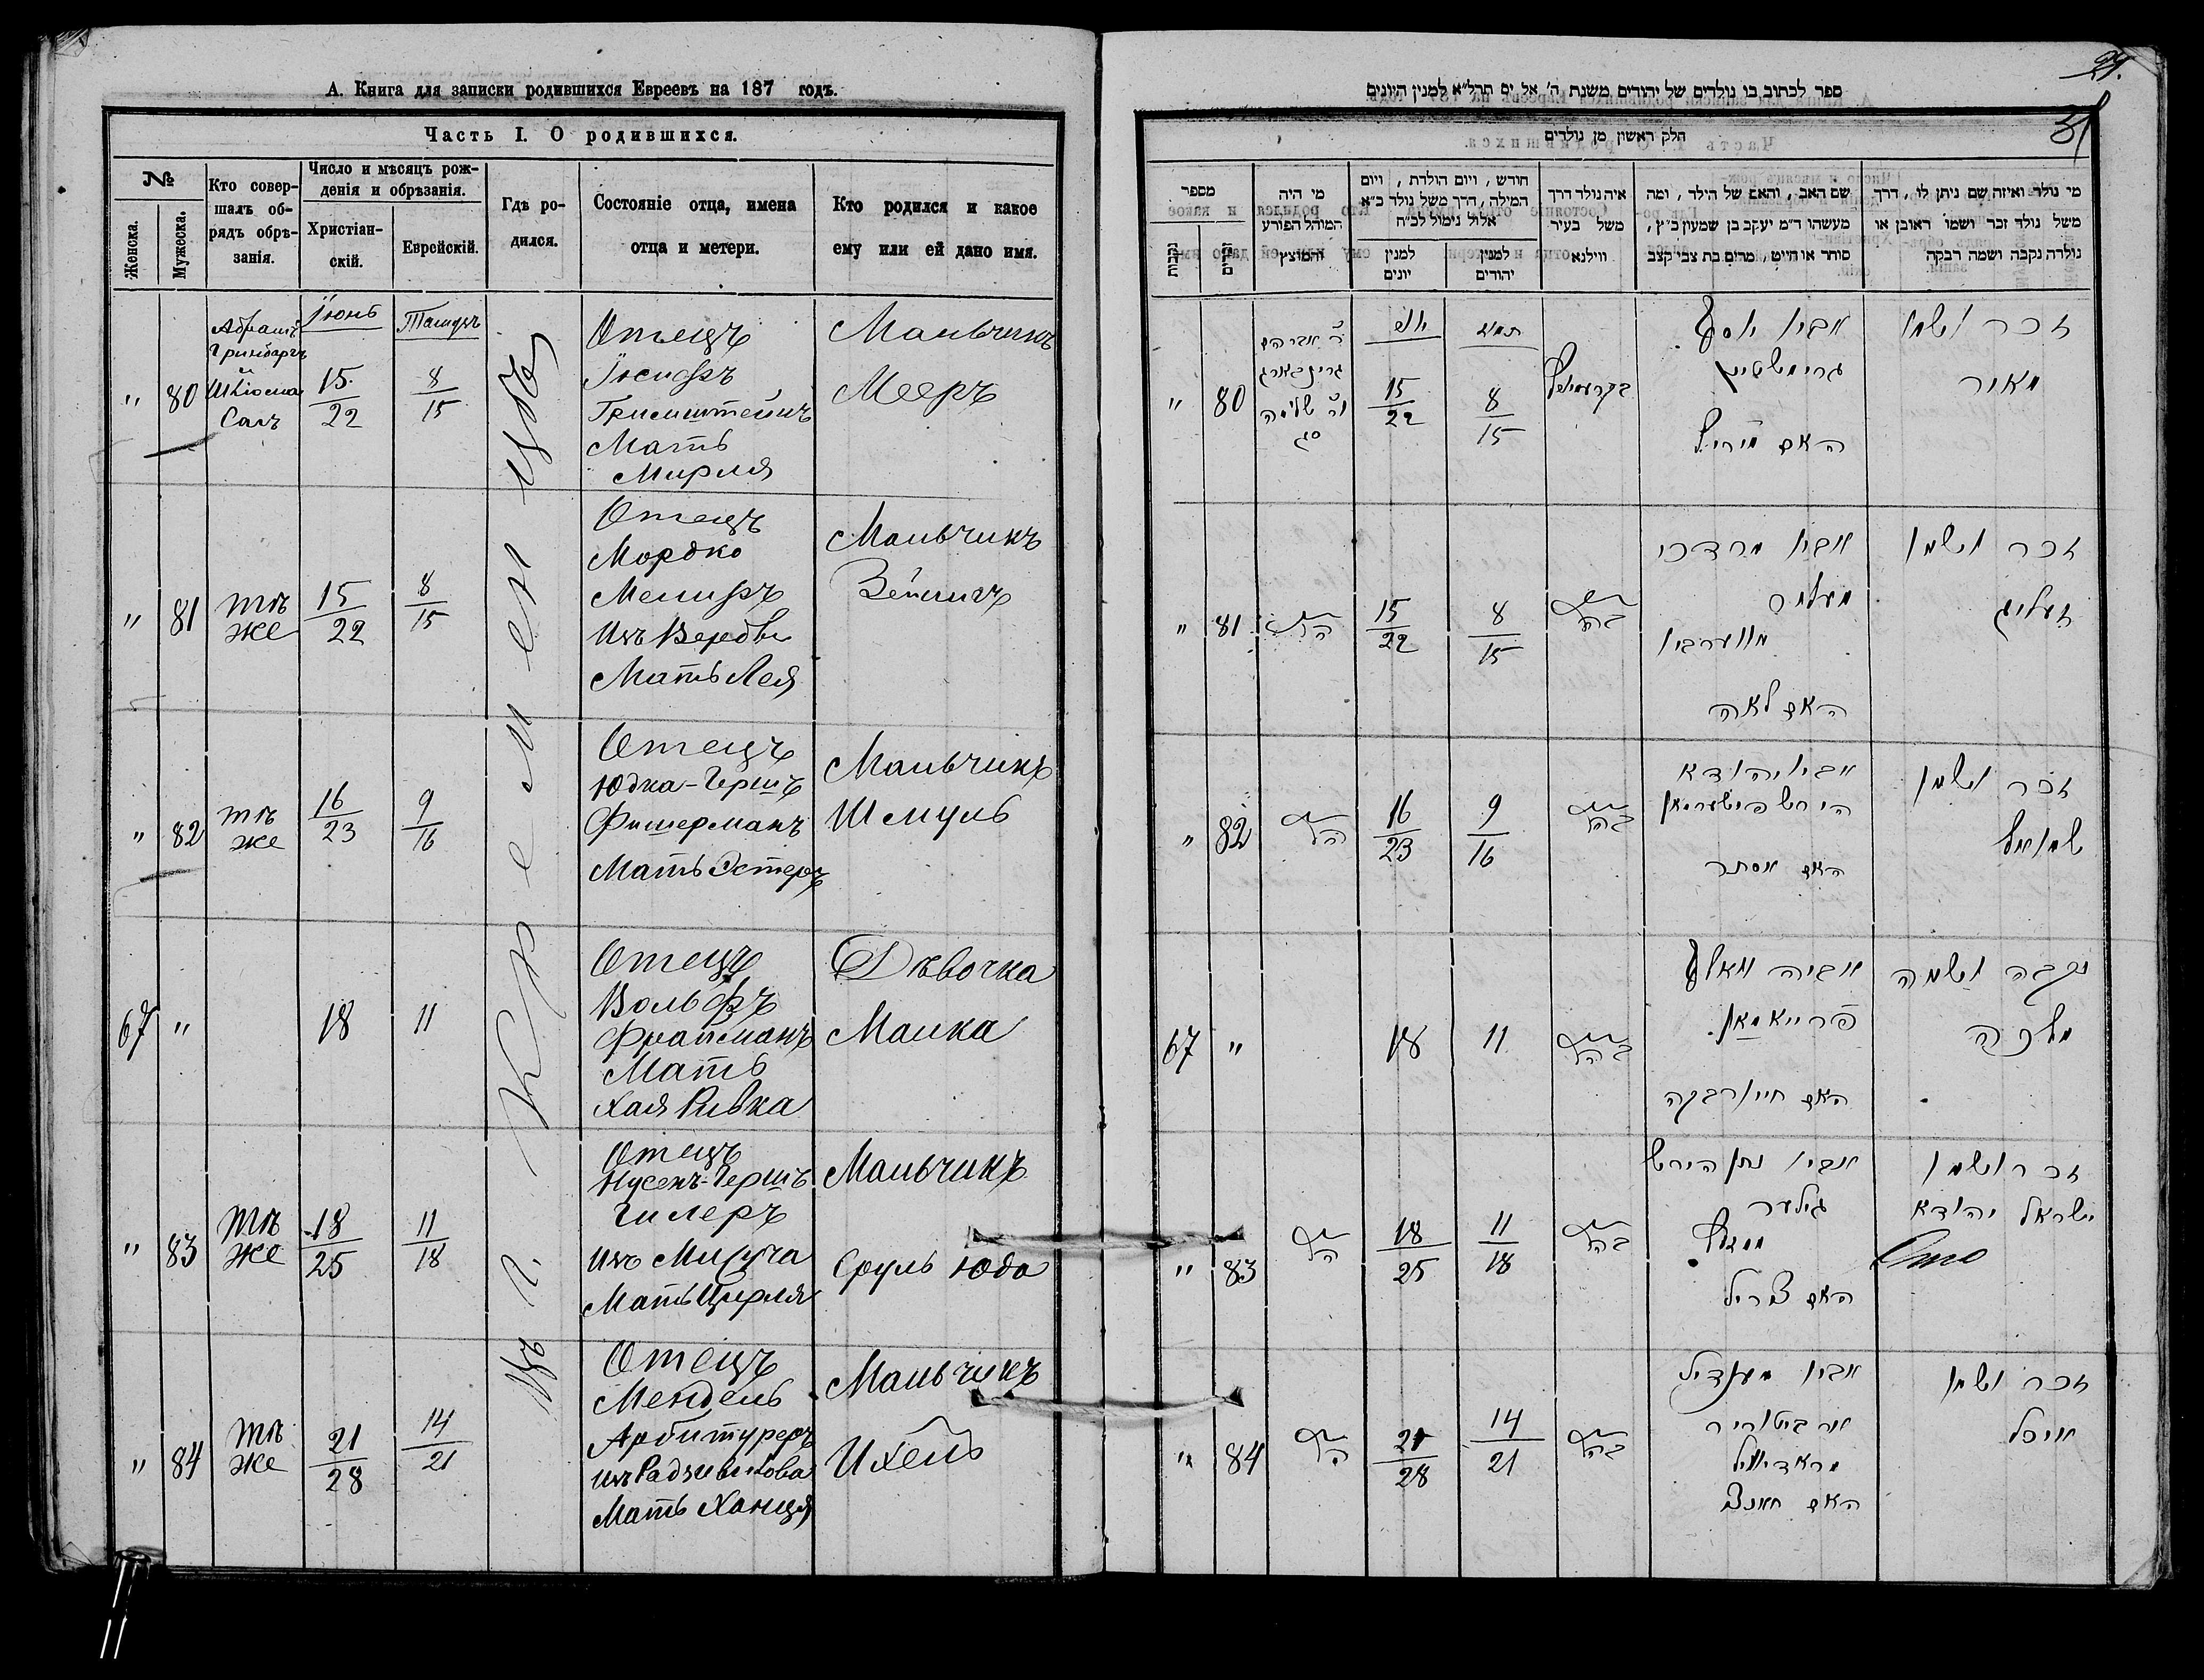 А. Книга для записки родившихся Евреевъ на 187 годъ.
Часть I. О родившихся.
№
Женска.
Мужеска.
Кто совер-
шалъ об-
рядъ обрѣ-
занія.
Число и мѣсяцъ рож-
денія и обрѣзанія.
Христіан-
скій.
Еврейскій.
Гдѣ ро-
дился.
Состояніе отца, имена
отца и метери.
Кто родился и какое
ему или ей дано имя.
Въ г. Кременцѣ
" 80
Абрамъ
Гринбергъ
и
Шліома
Салъ
Іюнь
15
22
Тамузъ
8
15
Отецъ
Іосифъ
Гримштейнъ
Мать
Мирля
Мальчикъ
Мееръ
" 81
тѣ
же
15
22
8
15
Отецъ
Мордко
Мелифъ
изъ Вербы
Мать Лея
Мальчикъ
Зейлигъ
" 82
тѣ
же
16
23
9
16
Отецъ
Юдка-Гершъ
Фишерманъ
Мать Эстеръ
Мальчикъ
Шмуль
67 "
18
11
Отецъ
Вольфъ
Фрайманъ
Мать
Хая Ривка
Дѣвочка
Малка
" 83
тѣ
же
18
25
11
18
Отецъ
Нусенъ-Гершъ
Гилеръ
Мать Цирля
Мальчикъ
Сруль Юда
" 84
тѣ
же
21
28
14
21
Отецъ
Мендель
Арбитуреръ
изъ Радзивилова
Мать Ханця
Мальчикъ
Ихель
31
ספר לכתוב בו נולדים של יהודים משנת ה' אל ים תרל"א למנין היונים
חלק ראשון מן נולדים
מספר
נקבות
זכרים
מי היה
המוהל הפורע
והמוצץ
חודש, ויום הולדת, ויום
המילה, דרך משל נולד כ"א
אלול נימול לכ"ח
למנין
יונים
למנין
יהודים
איה נולד דרך
משל בעיר
ווילנא
שם האב, והאם של הילד, ומה
מעשהו ד"מ יעקב בן שמעון כ"ץ,
סוחר או חייט, מרים בת צבי קצב
מי נולד ואיזה שם ניתן לו, דרך
משל נולד זכר ושמו ראובן או
נולדה נקבה ושמה רבקה
" 80
ר' אברהם
גרינבארג
ור' שלמה
סג
יוני
15
22
תמוז
8
15
אביו יוסף
גרימשטיין
האם מירל
זכר ושמו
מאיר
" 81
15
22
8
15
אביו מרדכי
האם לאה
זכר ושמו
זעליג
" 82
16
23
9
16
אביו יהודא
הירש פישערמאן
האם אסתר
זכר ושמו
שמואל
67 "
18
11
אביה וואלף
פריימאן
האם חיי' רבקה
נקבה ושמה
מלכה
" 83
18
25
11
18
אביו נתן הירש
גילער
האם צירל
זכר ושמו
ישראל יהודא
" 84
21
28
14
21
אביו מענדיל
האם חאנצי
זכר ושמו
איכל